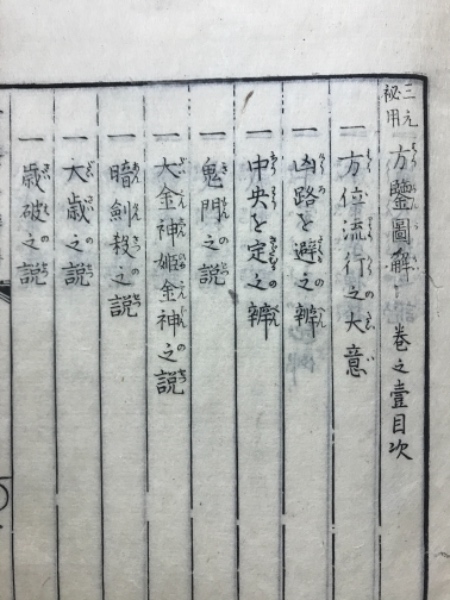 三元秘用 方鑒圖解 巻之壹目次
一 方位流行之大意
一 凶路を避之辨
一 中央を定之辨
一 鬼門之説
一 大金神姫金神之説
一 暗劍殺之説
一 大歳之説
一 歳破之説